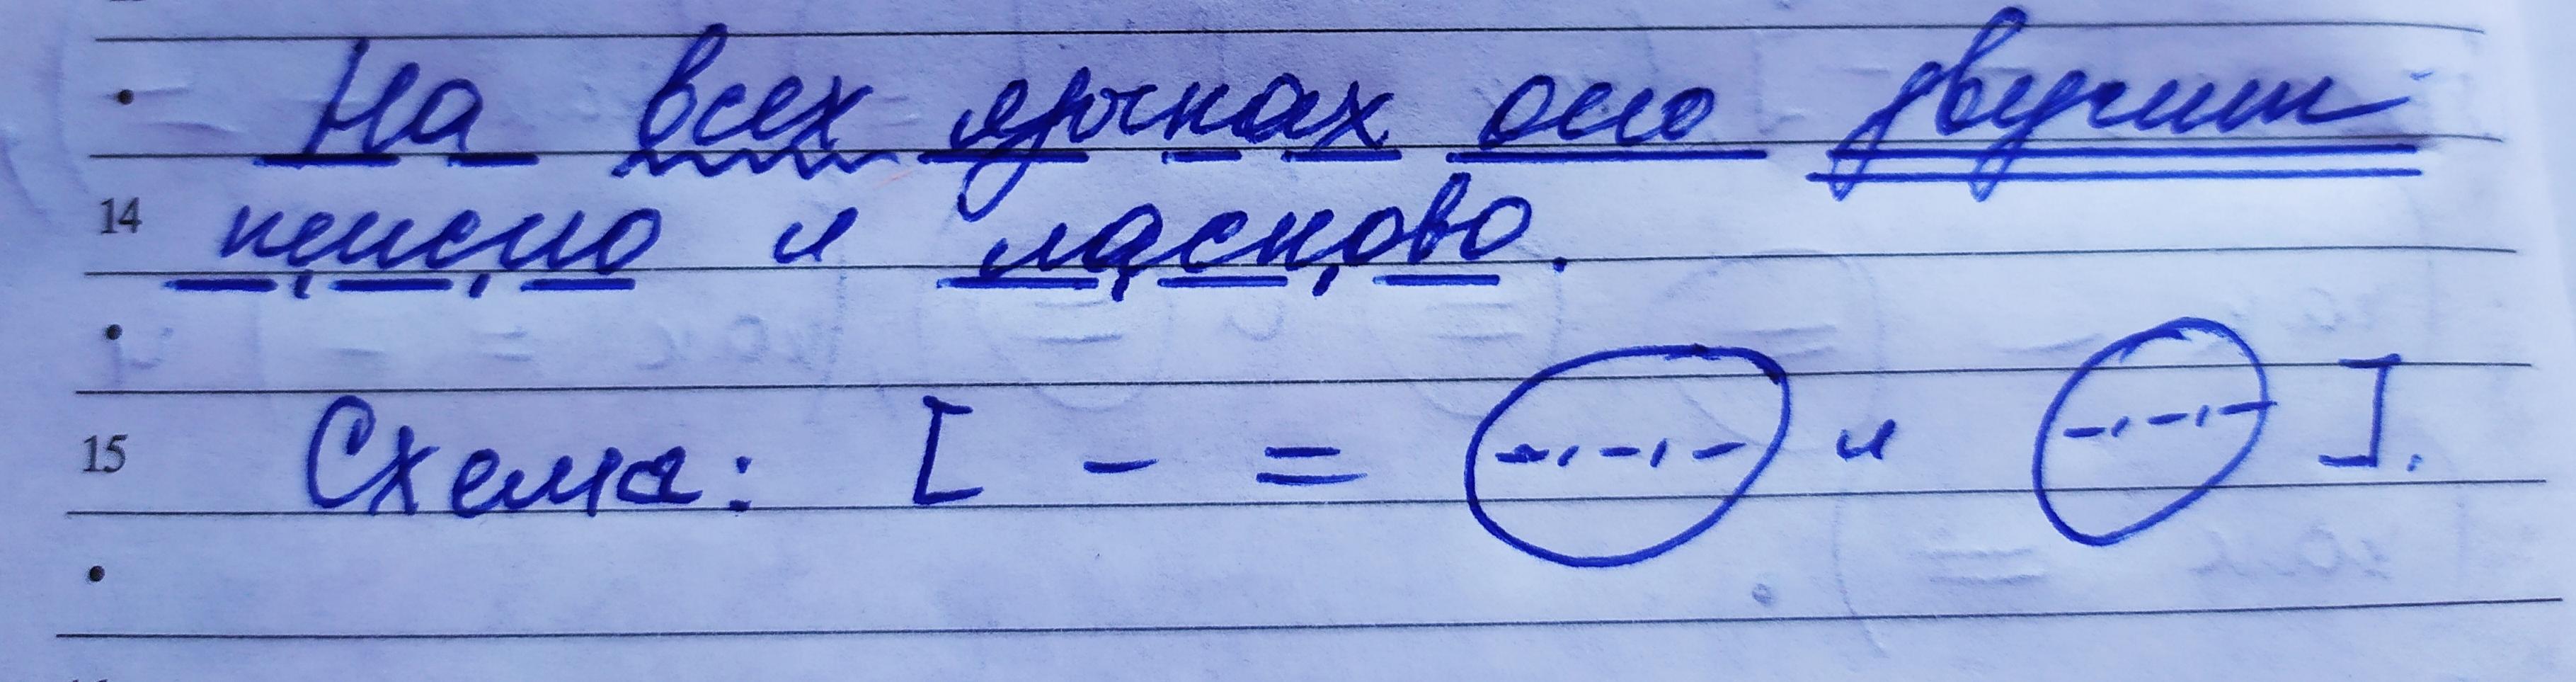 На всех языках оно звучит
14 нежно и ласково.
15 Схема: [ - = -.-.- и -.-.- ].